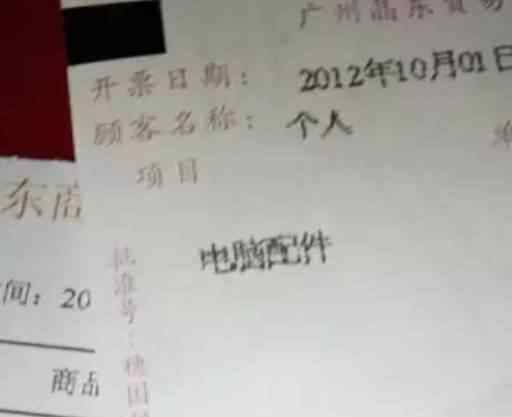 广州晶东贸易
开票日期：2012年10月01日
顾客名称：个人
项目
电脑配件
批准号：穗国
东店
间：20
商品